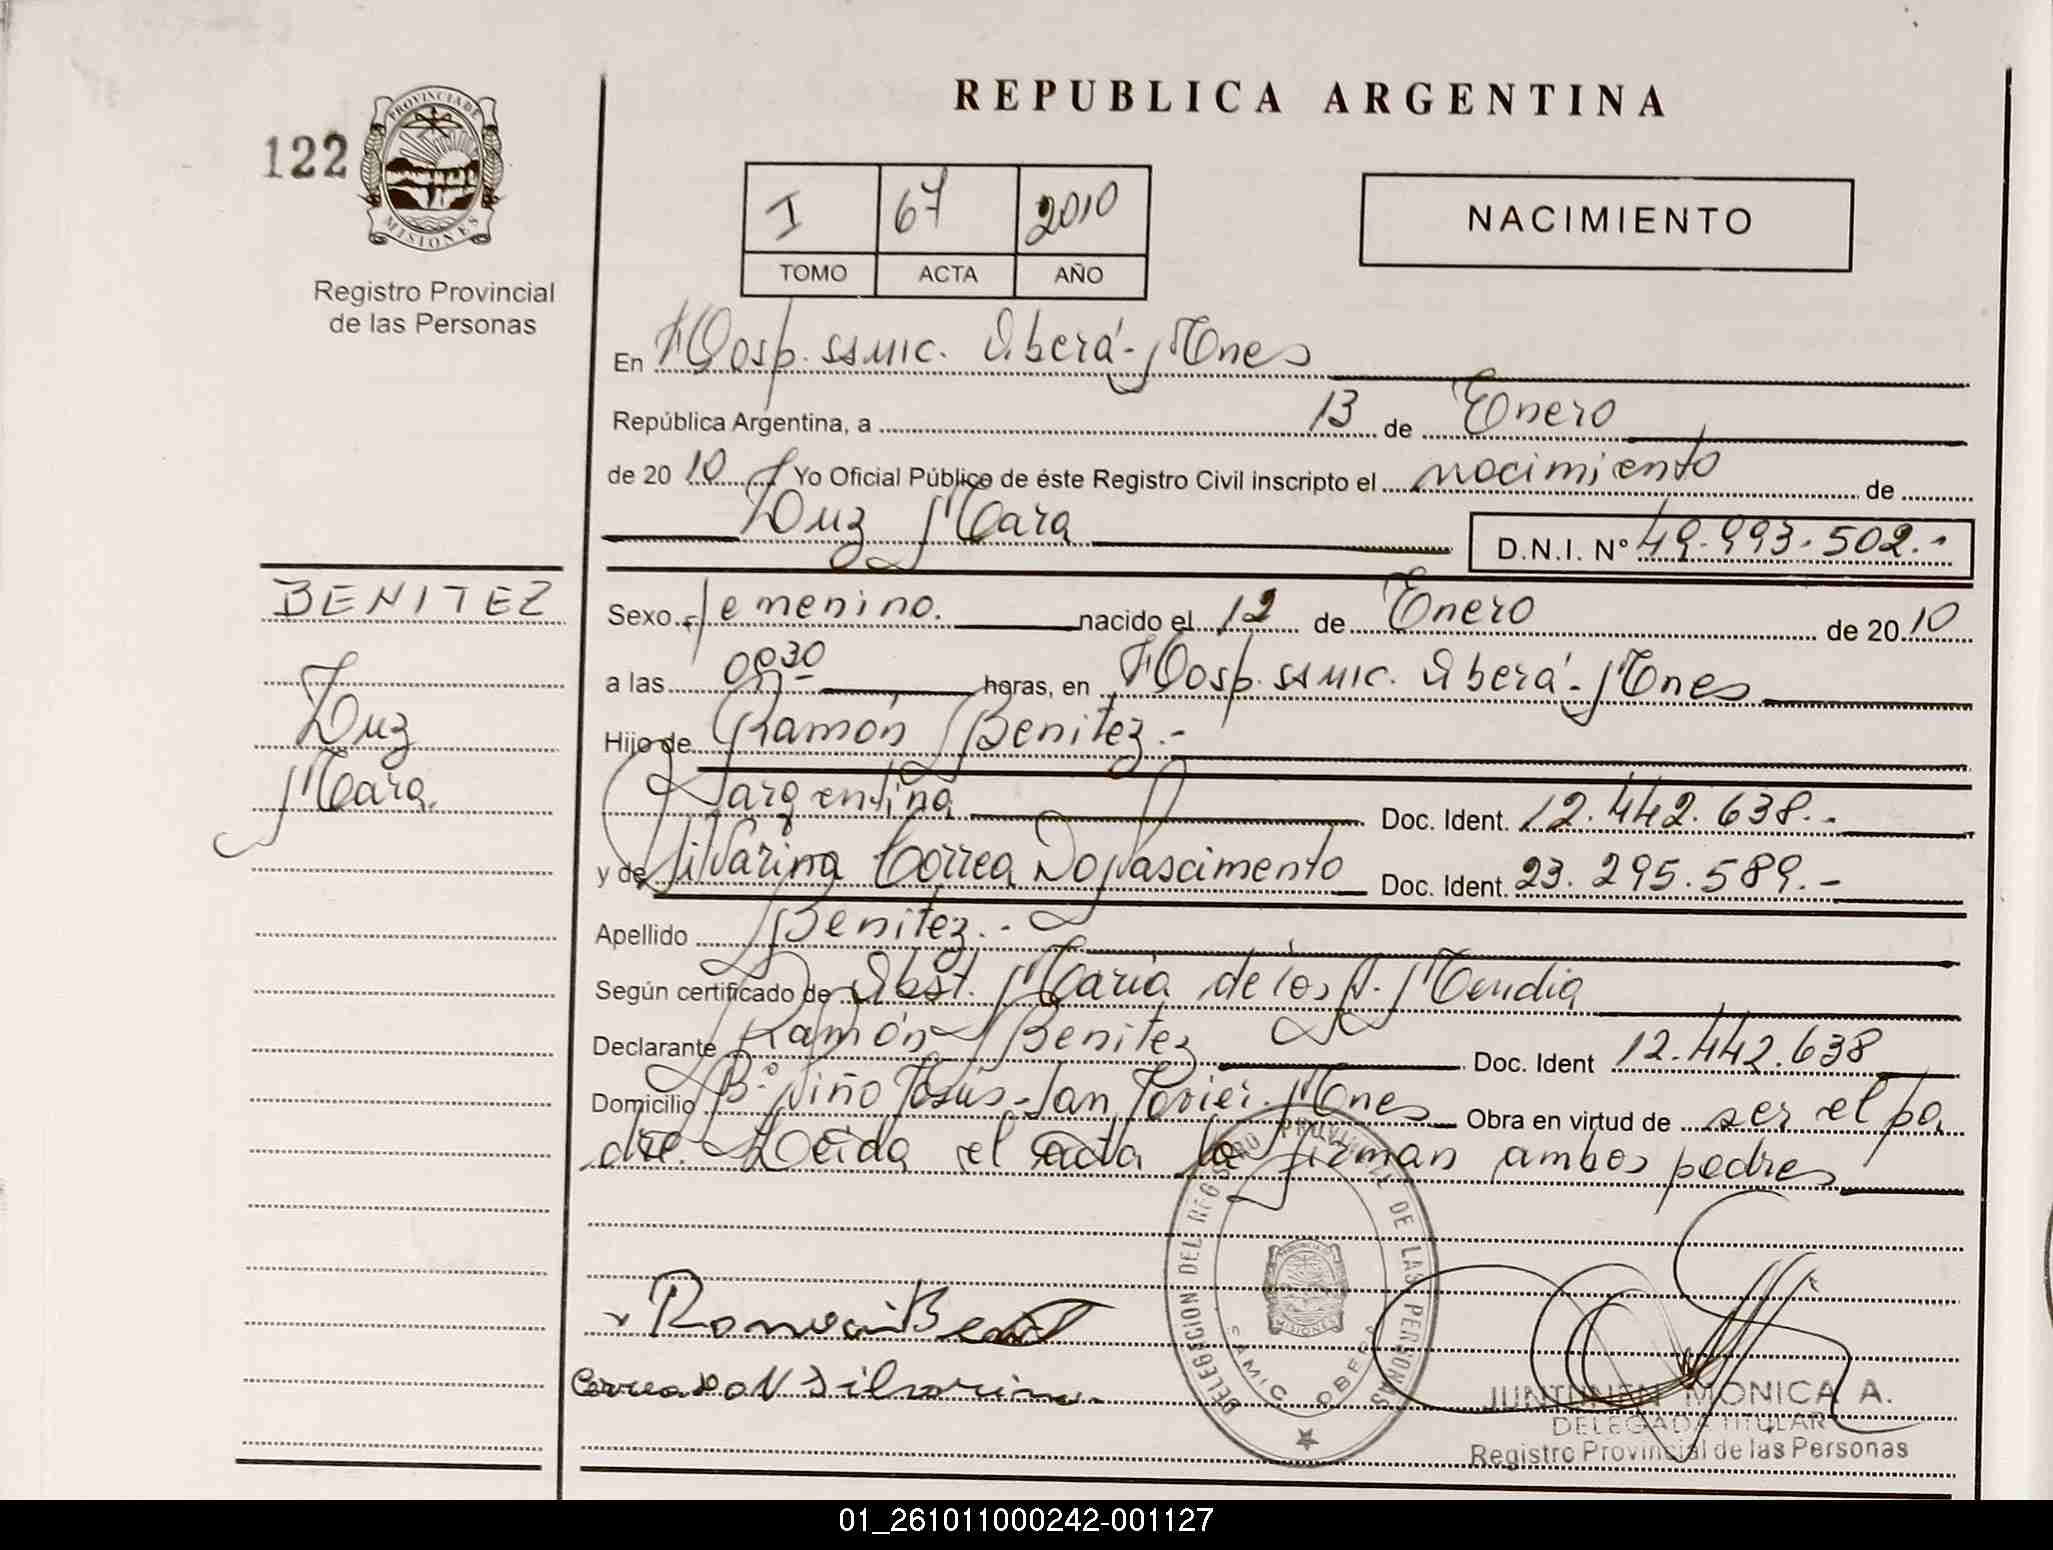 REPUBLICA ARGENTINA
122
PROVINCIA DE
MISIONES
Registro Provincial
de las Personas
I 67 2010
TOMO ACTA AÑO
NACIMIENTO
En Hosp. SAMIC. Oberá - Mnes
República Argentina, a 13 de Enero
de 20 10 Yo Oficial Público de éste Registro Civil inscripto el nacimiento de
Luz Mara D.N.I. Nº 49.993.502.-
BENITEZ
Luz
Mara.
Sexo femenino. nacido el 12 de Enero de 20 10
a las horas, en Hosp. SAMIC. Oberá - Mnes
Hijo de Ramón Benitez.-
argentina Doc. Ident. 12.442.638.-
y de Silvarina Correa Do Nascimento Doc. Ident. 23.295.589.-
Apellido Benitez.-
Según certificado de Obst. Maria de los A. Mendia
Declarante Ramón Benitez Doc. Ident 12.442.638
Domicilio Bº. Niño Jesús - San Javier - Mnes Obra en virtud de ser el pa
dre. Leida el acta la firman ambos padres
DELEGACION DEL REGISTRO PROVINCIAL DE LAS PERSONAS
PROVINCIA DE
MISIONES
SAMIC OBERA
Correa Do N Silvarina.
JUNTUNEN MONICA A.
DELEGADA TITULAR
Registro Provincial de las Personas
01_261011000242-001127